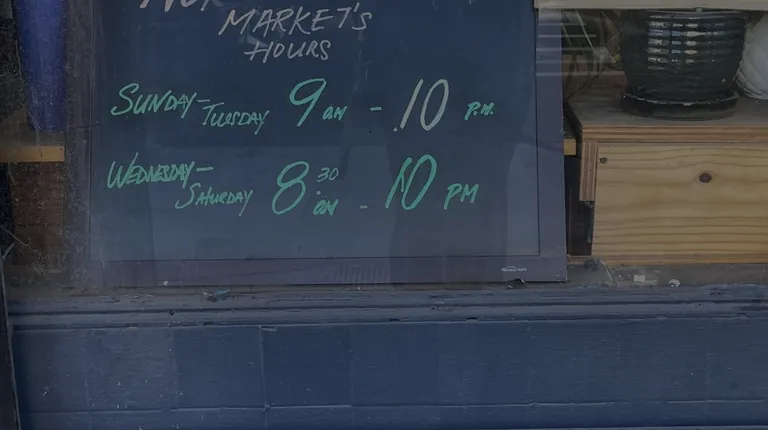 MARKET'S
HOURS
SUNDAY – TUESDAY 9 AM – 10 P.M.
WEDNESDAY – SATURDAY 8:30 AM – 10 PM